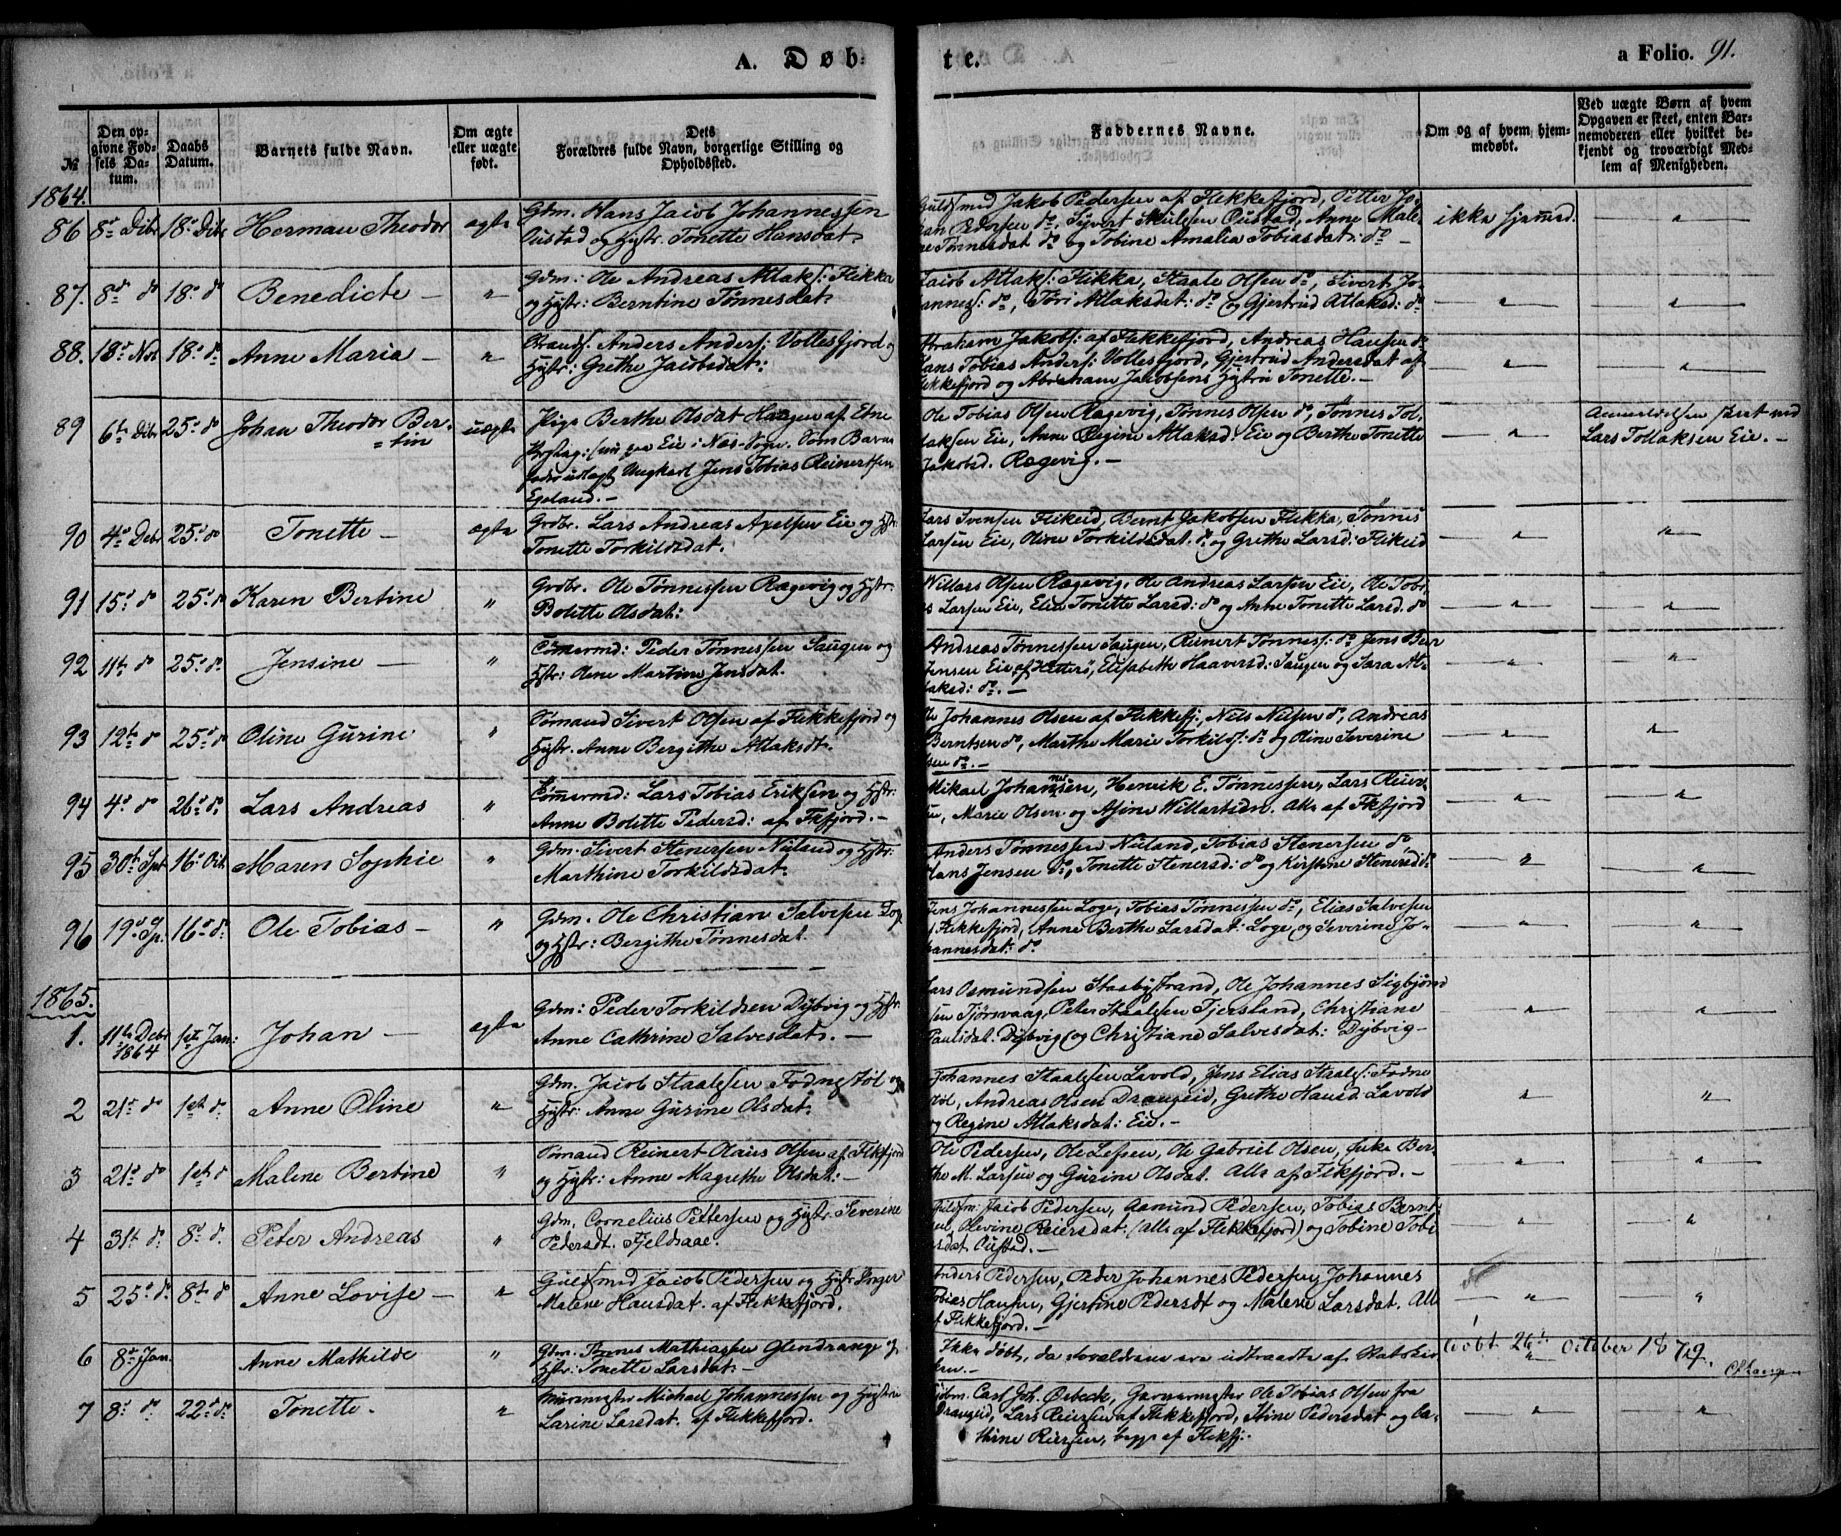 A. Døb-
te.
a Folio. 91.
№
Den op-
givne Fød-
sels Da-
tum.
Daabs
Datum.
Barnets fulde Navn.
Om ægte
eller uægte
født.
Dets
Forældres fulde Navn, borgerlige Stilling og
Opholdssted.
Faddernes Navne.
Om og af hvem hjem-
medøbt.
Ved uægte Børn af hvem
Opgaven er skeet, enten Bar-
nemoderen eller hvilket be-
kjendt og troværdigt Med-
lem af Menigheden.
1864.
86 8d Dbr 18d Dbr Herman Theodor ægte
Gdm. Hans Jacob Johannessen
Oustad og Hstr. Tonette Hansdat.
Guldsmed Jakob Pedersen af Flekkefjord, Petter Jo-
an Pedersen do, Syvert Skulesen Oustad, Anne Male-
ne Tønnesdat do og Tobine Amalia Tobiasdat: do —
ikke hjemd. "
87. 8d do 18d do Benedicte — "
Gdm: Ole Andreas Atlaks: Flikka
og Hstr: Berntine Tønnesdat.
Jacob Atlaks: Flikka, Staale Olsen do, Sivert Jo-
hannes: do, Tøri Atlaksdat: do og Gjertrud Atlaksd: do
— " — "
88. 18d Nov 18d do Anne Maria — "
Strands. Anders Anders: Vollesfjord og
Hstr: Grethe Jacobsdat:
Abraham Jakobs: af Flekkefjord, Andreas Hansen do
Hans Tobias Anders: Vollesfjord, Gjertrud Andersdat af
Flekkefjord og Abraham Jacobsens Hstru Tonette. —
— " — "
89 6te Dbr 25d do Johan Theodor Ber-
=tin uægte
Pige Berthe Olsdat Haugen af Etne
Prstgj: (nu paa Eie i Næs-Sogn. Som Barne
fader udlagt Ungkarl Jens Tobias Reinertsen
Egeland. —
Ole Tobias Olsen Rægevig, Tønnes Olsen do, Tønnes Tol-
laksen Eie, Anne Regine Atlaksd. Eie og Berthe Tonette
Jakobsd. Rægevig. —
— " —
Anmeldelsen skeet ved
Lars Tollaksen Eie. —
90 4d Debr 25d do Tonette — ægte
Grdbr. Lars Andreas Axelsen Eie og Hstr:
Tonette Torkildsdat.
Lars Svensen Flikeid, Bernt Jakobsen Flikka, Tønnes
Larsen Eie, Oline Torkildsdat. do og Grethe Larsd: Flikeid
— " — "
91 15d do 25d do Karen Bertine "
Grdbr. Ole Tønnessen Rægevig og Hstr:
Bolette Olsdat:
Willars Olsen Rægevig, Ole Andreas Larsen Eie, Ole Tobi-
as Larsen Eie, Elen Tonette Larsd: do og Anne Tonette Larsd. do
— " — "
92 11te do 25d do Jensine — "
Tømermd: Peder Tønnessen Saugen og
Hstr: Oline Martine Jensdat.
Andreas Tønnessen Saugen, Reinert Tønnes: do Jens Ber
Jensen Eie af Hitterø, Elisabeth Haaversd: Saugen og Sara At-
laksd: do. —
— " — "
93 12te do 25d do Oline Gurine "
Sømand Sivert Olsen af Flekkefjord og
Hstr. Anne Bergithe Atlaksdt.
Ole Johannes Olsen af Flekkefj:, Nils Nilsen do, Andreas
Berntsen do, Marthe Marie Torkilds: do og Oline Severine
sen do. —
— " — "
94 4d do 26d do Lars Andreas "
Tømermd: Lars Tobias Eriksen og Hstr:
Anne Bolette Pedersd: af Fkfjord. —
Mikael Johannesen, Henrik E. Tønnessen, Lars Reier-
, Marie Olsen og Asine . Alle af Fkfjord
— " — "
95 30te Spt 16d Oct. Maren Sophie "
Gdm. Sivert Stenersen Nuland og Hstr:
Marthine Torkildsdat.
Anders Tønnessen Nuland, Tobias Stenersen do
Hans Jensen do, Tonette Stenersd: do og Kirstine Stenersd: do
— " — "
96 19d Sp. 16d do Ole Tobias — "
Gdm. Ole Christian Salvesen Loge
og Hstr: Bergithe Tønnesdat.
Jens Johannessen Loge, Tobias Tønnessen do, Elias Salvesen
af Flekkefjord, Anne Berthe Larsdat: Loge og Severine Jo-
hannesdat: do
— " — "
1865.
1. 11te Debr
1864 1st Jan: Johan — ægte
Gdm: Peder Torkildsen Dybvig og Hstr:
Anne Cathrine Salvesdat. —
Lars Osmundsen Staabystrand, Ole Johannes Sigbjørn-
sen Tjørsvaag, Peter Staalesen Tjersland, Christiane
Paulsdat: Dybvig og Christiane Salvesdat: Dybvig —
— " — "
2 21d do 1st do Anne Oline "
Gdm. Jacob Staalesen Fodnestøl og
Hstr: Anne Gurine Olsdat.
Johannes Staalesen Lavold, Jens Elias Staales: Fodne
støl, Andreas Olsen Drangeid, Grethe Hansd. Lavold
og Regine Atlaksdat: Eie. —
" "
3 21d do 1st do Malene Bertine "
Sømand Reinert Olaus Olsen af Flkfjord
og Hstr: Anne Magrethe Olsdat: —
Ole Pedersen, Ole Lefsen, Ole Gabriel Olsen, Enke Ber-
the M. Larsen og Gurine Olsdat. Alle af Flkfjord. —
— " — "
4 31t do 8d do Peter Andreas "
Gdm. Cornelius Pettersen og Hstr. Severine
Pedersdt. Fjeldsaae.
Guldsm. Jacob Pedersen, Aamund Pedersen, Tobias Bernt-
sen, Olevine Reiersdat. (Alle af Flekkefjord) og Tobine Tobi-
asdat Oustad. —
— " — "
5 25d do 8te do Anne Lovise — "
Guldsmed Jacob Pedersen og Hstr. Inger
Malene Hansdat. af Flekkefjord.
Anders Pedersen, Peder Johannes Pedersen, Johannes
Tobias Hansen, Gjertine Pedersdt og Malene Larsdat. Alle
af Flekkefjord. —
— " — "
6 8d Jan. Anne Mathilde "
Gdm. Tønnes Mathiassen Glendrange og
Hstr: Tonette Larsdat. —
Ikke døbt, da Forældrene ere udtraadte af Statskir-
ken. —
døbt 26de October 1879.
7 8d do 22d do Tonette. — "
Muurmester Michael Johannessen og Hustru
Larine Larsdat. af Flekkefjord.
Carl Joh. Beebeck, Garvermester Ole Tobias Olsen fra
Drangeid, Lars Reiersen af Flekkefjord, Stine Pedersdat og Ca-
thrine Reiersen, begge af Flekfj.
— " — "